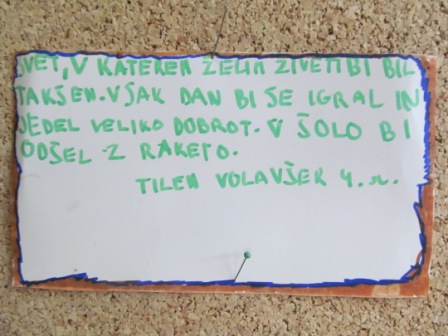 SVET, V KATEREM ŽELIM ŽIVETI BI BIL
TAKŠEN. VSAK DAN BI SE IGRAL IN
JEDEL VELIKO DOBROT. V ŠOLO BI
ODŠEL Z RAKETO.
TILEN VOLAVŠEK 4. r.